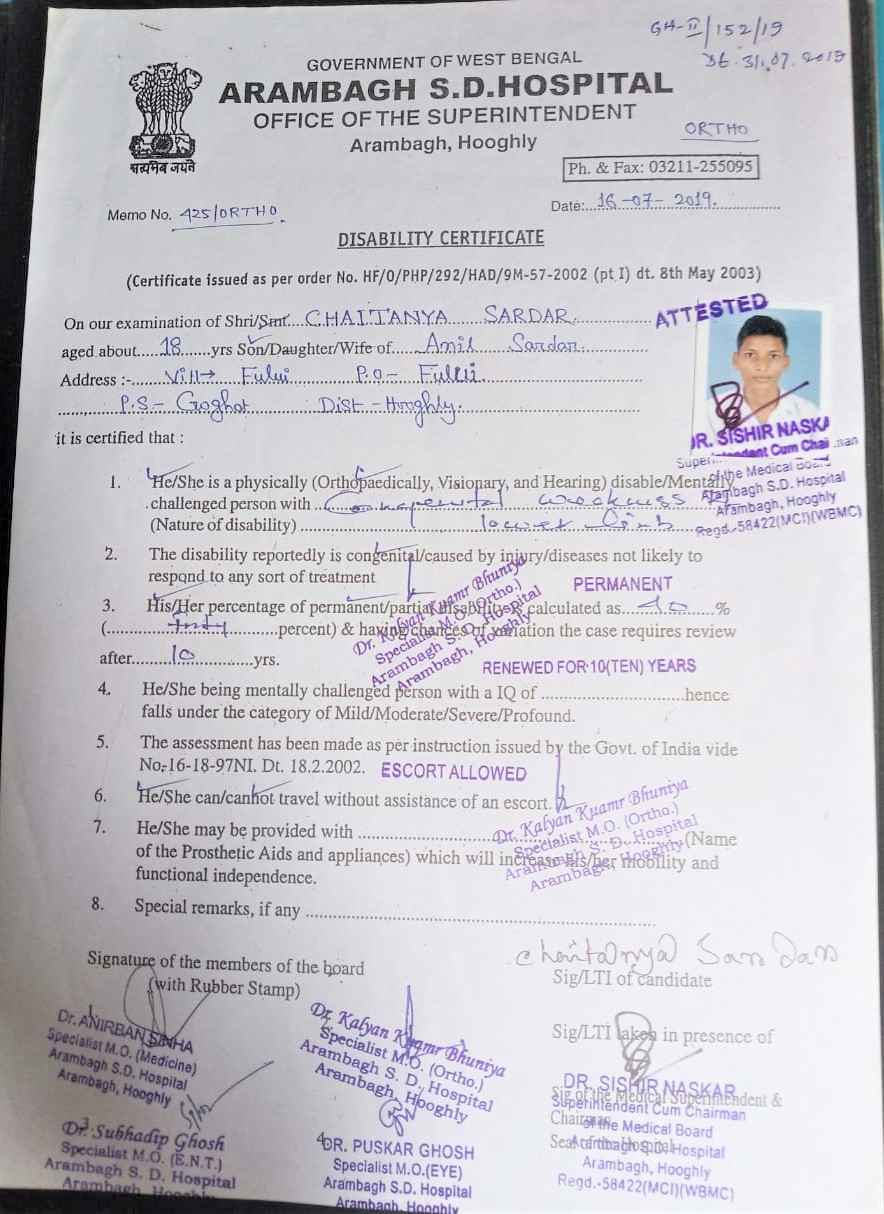 GH-II/152/19
Dt. 31.07.2019
GOVERNMENT OF WEST BENGAL
ARAMBAGH S.D.HOSPITAL
OFFICE OF THE SUPERINTENDENT
Arambagh, Hooghly
ORTHO
सत्यमेव जयते
Ph. & Fax: 03211-255095
Memo No. 425/ORTHO.
Date:...16-07-2019.
DISABILITY CERTIFICATE
(Certificate issued as per order No. HF/O/PHP/292/HAD/9M-57-2002 (pt I) dt. 8th May 2003)
On our examination of Shri/Smt...CHAITANYA SARDAR.
ATTESTED
aged about.....18......yrs Son/Daughter/Wife of.....Anil Sardar.
Address :-.......Vill→ Fului P.O- Fului.
P.S- Goghat Dist-Hooghly.
DR. SISHIR NASKA
it is certified that :
Superintendent Cum Chai nan
of the Medical Board
Arambagh S.D. Hospital
Arambagh, Hooghly
Regd.-58422(MCI)(WBMC)
1. He/She is a physically (Orthopaedically, Visionary, and Hearing) disable/Mentally
challenged person with ..Congenital weakness
(Nature of disability) .......lower limb
2. The disability reportedly is congenital/caused by injury/diseases not likely to
respond to any sort of treatment
PERMANENT
3. His/Her percentage of permanent/partial disability is calculated as...40......%
(...............percent) & having chances of variation the case requires review
after.........10............yrs.
Dr. Kalyan Kuamr Bhuniya
Specialist M.O. (Ortho.)
Arambagh S. D. Hospital
Arambagh, Hooghly
RENEWED FOR 10(TEN) YEARS
4. He/She being mentally challenged person with a IQ of ..........................hence
falls under the category of Mild/Moderate/Severe/Profound.
5. The assessment has been made as per instruction issued by the Govt. of India vide
No.-16-18-97NI. Dt. 18.2.2002. ESCORT ALLOWED
6. He/She can/cannot travel without assistance of an escort.
7. He/She may be provided with .........................(Name
of the Prosthetic Aids and appliances) which will increase his/her mobility and
functional independence.
Dr. Kalyan Kuamr Bhuniya
Specialist M.O. (Ortho.)
Arambagh S. D. Hospital
Arambagh, Hooghly
8. Special remarks, if any ..................................................................
Chaitanya Sardar
Signature of the members of the board
(with Rubber Stamp)
Sig/LTI of candidate
Sig/LTI taken in presence of
1 Dr. ANIRBAN SINHA
Specialist M.O. (Medicine)
Arambagh S.D. Hospital
Arambagh, Hooghly
Dr. Kalyan Kuamr Bhuniya
Specialist M.O. (Ortho.)
Arambagh S. D. Hospital
Arambagh, Hooghly
Sig of the Medical Superintendent &
Chairman
Seal of the Hospital
DR. SISHIR NASKAR
Superintendent Cum Chairman
of the Medical Board
Arambagh S.D. Hospital
Arambagh, Hooghly
Regd.-58422(MCI)(WBMC)
3 Dr. Subhadip Ghosh
Specialist M.O. (E.N.T.)
Arambagh S. D. Hospital
Arambagh Hooghly
4 DR. PUSKAR GHOSH
Specialist M.O.(EYE)
Arambagh S.D. Hospital
Arambagh, Hooghly